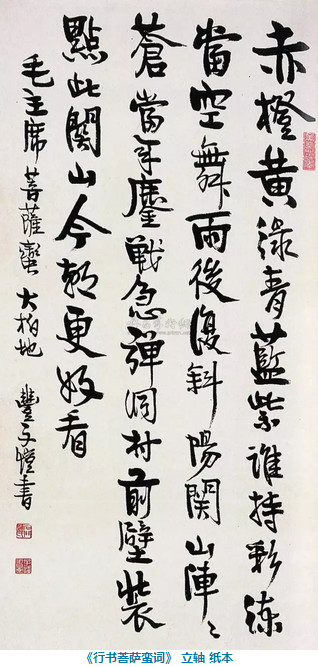 赤橙黃綠青藍紫誰持彩練
當空舞雨後復斜陽關山陣〻
蒼當年鏖戰急彈洞村前壁裝
點此關山今朝更好看
毛主席菩薩蠻 大柏地 豐子愷書
《行书菩萨蛮词》 立轴 纸本